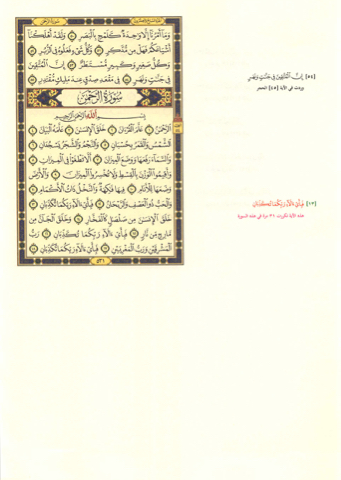 وَمَآ أَمْرُنَآ إِلَّا وَٰحِدَةٌ كَلَمْحٍۭ بِٱلْبَصَرِ ۝ وَلَقَدْ أَهْلَكْنَآ
أَشْيَاعَكُمْ فَهَلْ مِن مُّدَّكِرٍ ۝ وَكُلُّ شَىْءٍ فَعَلُوهُ فِى ٱلزُّبُرِ ۝
وَكُلُّ صَغِيرٍ وَكَبِيرٍ مُّسْتَطَرٌ ۝ إِنَّ ٱلْمُتَّقِينَ
فِى جَنَّٰتٍ وَنَهَرٍ ۝ فِى مَقْعَدِ صِدْقٍ عِندَ مَلِيكٍ مُّقْتَدِرٍۭ ۝
سُورَةُ الرَّحْمَٰن
بِسْمِ ٱللَّهِ ٱلرَّحْمَٰنِ ٱلرَّحِيمِ
ٱلرَّحْمَٰنُ ۝ عَلَّمَ ٱلْقُرْءَانَ ۝ خَلَقَ ٱلْإِنسَٰنَ ۝ عَلَّمَهُ ٱلْبَيَانَ ۝
ٱلشَّمْسُ وَٱلْقَمَرُ بِحُسْبَانٍ ۝ وَٱلنَّجْمُ وَٱلشَّجَرُ يَسْجُدَانِ ۝
وَٱلسَّمَآءَ رَفَعَهَا وَوَضَعَ ٱلْمِيزَانَ ۝ أَلَّا تَطْغَوْا۟ فِى ٱلْمِيزَانِ ۝
وَأَقِيمُوا۟ ٱلْوَزْنَ بِٱلْقِسْطِ وَلَا تُخْسِرُوا۟ ٱلْمِيزَانَ ۝ وَٱلْأَرْضَ
وَضَعَهَا لِلْأَنَامِ ۝ فِيهَا فَٰكِهَةٌ وَٱلنَّخْلُ ذَاتُ ٱلْأَكْمَامِ ۝
وَٱلْحَبُّ ذُو ٱلْعَصْفِ وَٱلرَّيْحَانُ ۝ فَبِأَىِّ ءَالَآءِ رَبِّكُمَا تُكَذِّبَانِ ۝
خَلَقَ ٱلْإِنسَٰنَ مِن صَلْصَٰلٍ كَٱلْفَخَّارِ ۝ وَخَلَقَ ٱلْجَآنَّ مِن
مَّارِجٍ مِّن نَّارٍ ۝ فَبِأَىِّ ءَالَآءِ رَبِّكُمَا تُكَذِّبَانِ ۝ رَبُّ
ٱلْمَشْرِقَيْنِ وَرَبُّ ٱلْمَغْرِبَيْنِ ۝ فَبِأَىِّ ءَالَآءِ رَبِّكُمَا تُكَذِّبَانِ ۝
٥٣١
[٥٤] إِنَّ ٱلْمُتَّقِينَ فِى جَنَّٰتٍ وَنَهَرٍ
وردت في الآية [٤٥] الحجر
[١٣] فَبِأَىِّ ءَالَآءِ رَبِّكُمَا تُكَذِّبَانِ
هذه الآية تكررت ٣١ مرة في هذه السورة